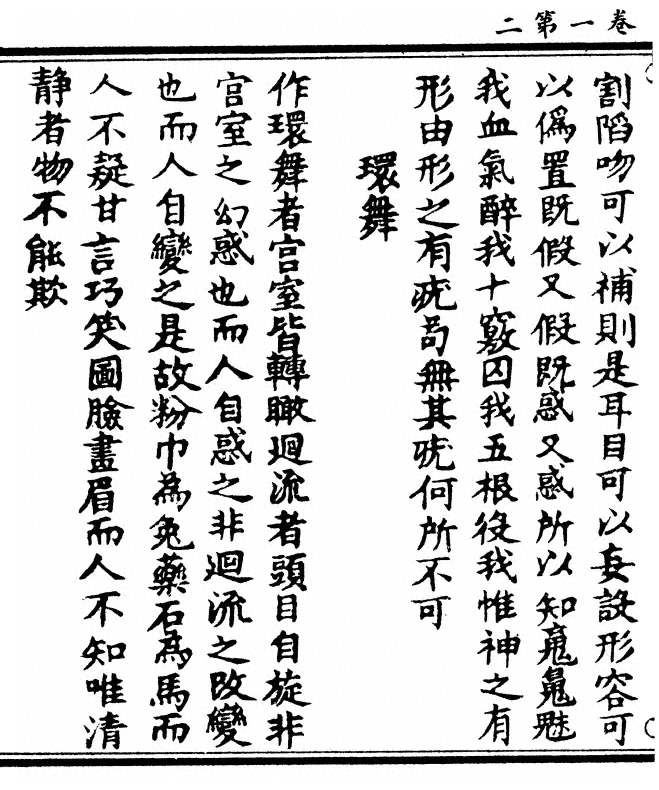 卷一第二
割陷吻可以補則是耳目可以妄設形容可
以僞置既假又假既惑又惑所以知䰟魄魅
我血氣醉我十竅囚我五根役我惟神之有
形由形之有疣苟無其疣何所不可
環舞
作環舞者宮室皆轉瞰迴流者頭目自旋非
宮室之幻惑也而人自惑之非迴流之改變
也而人自變之是故粉巾為兔藥石為馬而
人不疑甘言巧笑圖臉畫眉而人不知唯清
靜者物不能欺